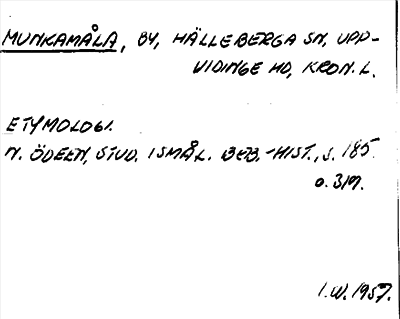 MUNKAMÅLA, BY, HÄLLEBERGA SN, UPP-
VIDINGE HD, KRON. L.
ETYMOLOGI.
N. ÖDEEN, STUD. I SMÅL. BEB.-HIST., S. 185.
O. 317.
I.W. 1957.